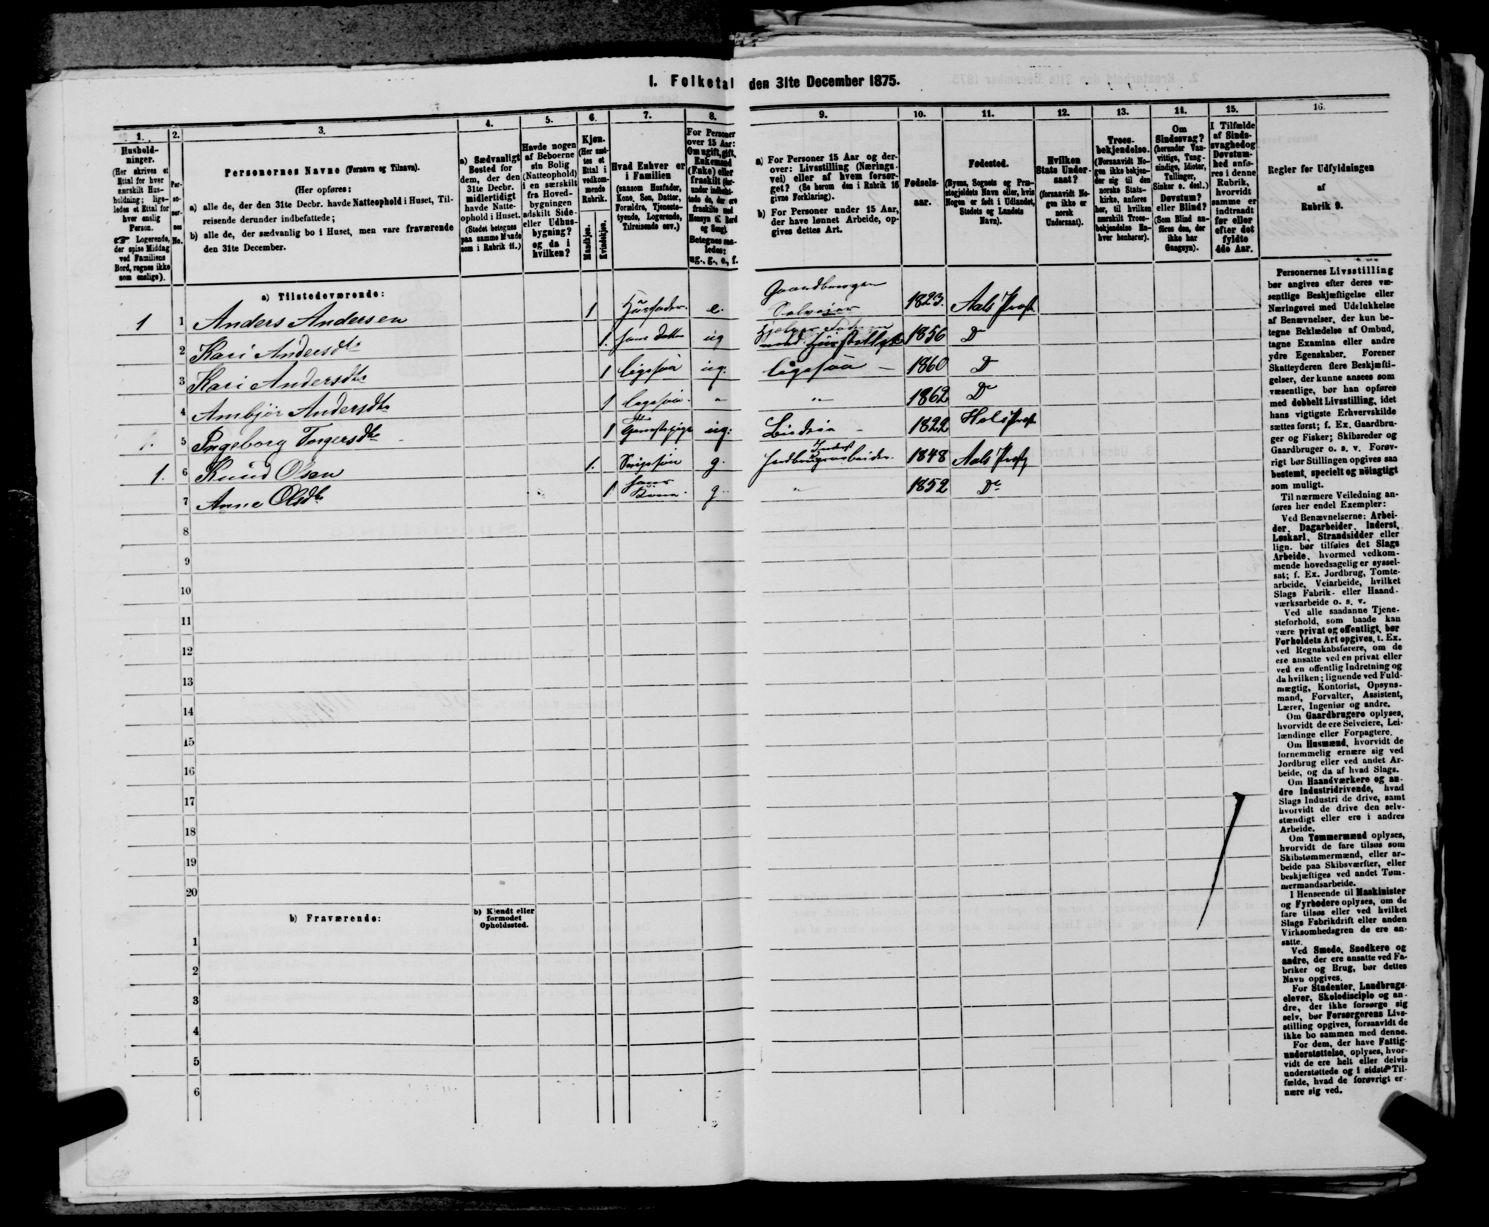 1. Folketal den 31te December 1875.
1.
Hushold-
ninger.
(Her skrives et
Ettal for hver
særskilt Hus-
holdning; lige-
ledes et Ettal for
hver enslig
Person.
Logerende,
der spise Middag
ved Familiens
Bord, regnes ikke
som enslige).
2.
Per-
so-
ner-
nes
No.
3.
Personernes Navne (Fornavn og Tilnavn).
(Her opføres:
a) alle de, der den 31te Decbr. havde Natteophold i Huset, Til-
reisende derunder indbefattede;
b) alle de, der sædvanlig bo i Huset, men vare fraværende
den 31te December.
4.
a) Sædvanligt
Bosted for
dem, der den
31te Decbr.
midlertidigt
havde Natte-
ophold i Huset.
(Stedet betegnes
paa samme Maade
som i Rubrik 11.)
5.
Havde nogen
af Beboerne
sin Bolig
(Natteophold)
i en særskilt
fra Hoved-
bygningen
adskilt Side-
eller Udhus-
bygning?
og da i
hvilken?
6.
Kjøn.
(Her sæt-
tes et
Ettal i
vedkom-
mende
Rubrik.
Mandkjøn.
Kvindekjøn.
7.
Hvad Enhver er
i Familien
(saasom Husfader,
Kone, Søn, Datter,
Forældre, Tjeneste-
tyende, Logerende,
Tilreisende osv.)
8.
For Personer
over 15 Aar:
Om ugift, gift,
Enkemand
(Enke) eller
fraskilt
Betegnes saa-
ledes:
ug., g., e., f.
9.
a) For Personer 15 Aar og der-
over: Livsstilling (Nærings
vei) eller af hvem forsør-
get? (Se herom den i Rubrik 16
givne Forklaring).
b) For Personer under 15 Aar,
der have lønnet Arbeide, op-
gives dettes Art.
10.
Fødsels-
aar.
11.
Fødested.
(Byens, Sognets og Præ-
stegjeldets Navn eller, hvis
Nogen er født i Udlandet,
Stedets og Landets
Navn).
12.
Hvilken
Stats Under-
saat?
(forsaavidt No-
gen ikke er
norsk
Undersaat).
13.
Troes-
bekjendelse.
(Forsaavidt No-
gen ikke bekjen-
der sig til den
norske Stats-
kirke, anføres
her, til hvilken
særskilt Troes-
bekjendelse En-
hver henhører).
14.
Om
Sindssvag?
(herunder Van-
vittige, Tung-
sindige, Idioter,
Tullinger,
Sinker o. desl.)
Døvstum?
eller Blind?
(Som Blind an-
føres den, der
ikke har
Gangsyn).
15.
I Tilfælde
af Sinds-
svaghed og
Døvstum-
hed anfø-
res i denne
Rubrik,
hvorvidt
samme er
indtraadt
før eller
efter det
fyldte
4de Aar.
16.
Regler for Udfyldningen
af
Rubrik 9.
a) Tilstedeværende:
1 1 Anders Andersen 1 Husfader e. Gaardbruger Selveier 1823. Aals Præst
2 Kari Andersdtr 1. hans datter ug 1856 D
3 Kari Andersdtr 1 ligesaa ug. ligesaa 1860 D
4 Ambjør Andersdtr 1 ligesaa. " " 1862 D
5 Ingeborg Torgersdtr 1 ug. 1822 Hols Præst
1. 6 Knud Olsen 1. g. Inderst Jordbrugsarbeider. 1848 Aals Præstg
7 Anne Olsdtr 1 hans Kone. g. " 1852 Do
8
9
10
11
12
13
14
15
16
17
18
19
20
b) Fraværende:
b) Kjendt eller
formodet
Opholdssted.
1
2
3
4
5
6
Personernes Livsstilling
bør angives efter deres væ-
sentlige Beskjæftigelse eller
Næringsvei med Udelukkelse
af Benævnelser, der kun be-
tegne Beklædelse af Ombud,
tagne Examina eller andre
ydre Egenskaber. Forener
Skatteyderen flere Beskjæfti-
gelser, der kunne ansees som
væsentlige, bør han opføres
med dobbelt Livsstilling, idet
hans vigtigste Erhvervskilde
sættes først; f. Ex. Gaardbru-
ger og Fisker; Skibsreder og
Gaardbruger o. s. v. Forøv-
rigt bør Stillingen opgives saa
bestemt, specielt og nøiagtigt
som muligt.
Til nærmere Veiledning an-
føres her endel Exempler:
Ved Benævnelserne: Arbei-
der, Dagarbeider, Inderst,
Løskarl, Strandsidder eller
lign. bør tilføies det Slags
Arbeide, hvormed vedkom-
mende hovedsagelig er syssel-
sat; f. Ex. Jordbrug, Tomte-
arbeide, Veiarbeide, hvilket
Slags Fabrik- eller Haand-
værksarbeide o. s. v.
Ved alle saadanne Tjene-
steforhold, som baade kan
være privat og offentligt, bør
Forholdets Art opgives, t. Ex.
ved Regnskabsførere, om de
ere ansatte ved en privat eller
ved en offentlig Indretning og
da hvilken; lignende ved Fuld-
mægtig, Kontorist, Opsyns-
mand, Forvalter, Assistent,
Lærer, Ingeniør og andre.
Om Gaardbrugere oplyses,
hvorvidt de ere Selveiere, Lei-
lændinge eller Forpagtere.
Om Husmænd, hvorvidt de
fornemmelig ernære sig ved
Jordbrug eller ved andet Ar-
beide, og da af hvad Slags.
Om Haandværkere og an-
dre Industridrivende, hvad
Slags Industri de drive, samt
hvorvidt de drive den selv-
stændigt eller ere i andres
Arbeide.
Om Tømmermænd oplyses,
hvorvidt de fare tilsøs som
Skibstømmermænd, eller ar-
beide paa Skibsværfter, eller
beskjæftiges ved andet Tøm-
mermandsarbeide.
I Henseende til Maskinister
og Fyrbødere oplyses, om de
fare tilsøs eller ved hvilket
Slags Fabrikdrift eller anden
Virksomhedsgren de ere an-
satte.
Ved Smede, Snedkere og
andre, der ere ansatte ved Fa-
briker og Brug, bør dettes
Navn opgives.
For Studenter, Landbrugs-
elever, Skoledisciple og an-
dre, der ikke forsørge sig
selv, bør Forsørgerens Livs-
stilling opgives, forsaavidt de
ikke bo sammen med denne.
For dem, der have Fattig-
understøttelse, oplyses, hvor-
vidt de ere helt eller delvis
understøttede og i sidste Til-
fælde, hvad de forøvrigt er-
nære sig ved.